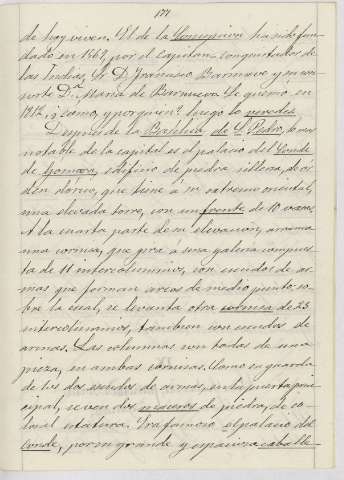 177
de hoy viven. El de la Concepcion ha sido fun-
dado en 1569, por el Capitan conquistador de
las Indias, Sr. D. Francisco Barnuevo y su con-
sorte D.ª Maria de Barnuevo. Se quemo en
y como, y por quien? luego lo veredes
Despues de la Basilica de S. Pedro, lo mas
notable de la capital es el palacio del Conde
de Gomara, edificio de piedra silleria, de or-
den dórico, que tiene á su extremo oriental,
una elevada torre, con un frente de 10 varas.
A la cuarta parte de su elevacion, arranca
una cornisa, que gira á una galeria compues-
ta de 11 intercolumnios, con escudos de ar-
mas que forman arcos de medio punto, so-
bre la cual, se levanta otra cornisa de 23
intercolumnios, tambien con escudos de
armas. Las columnas son todas de una
pieza, en ambas cornisas. Como en guarda
de los dos escudos de armas, en la puerta prin-
cipal, se ven dos maceros de piedra, de co-
losal estatura. Era famoso el palacio del
Conde, por su grande y espaciosa caballe-